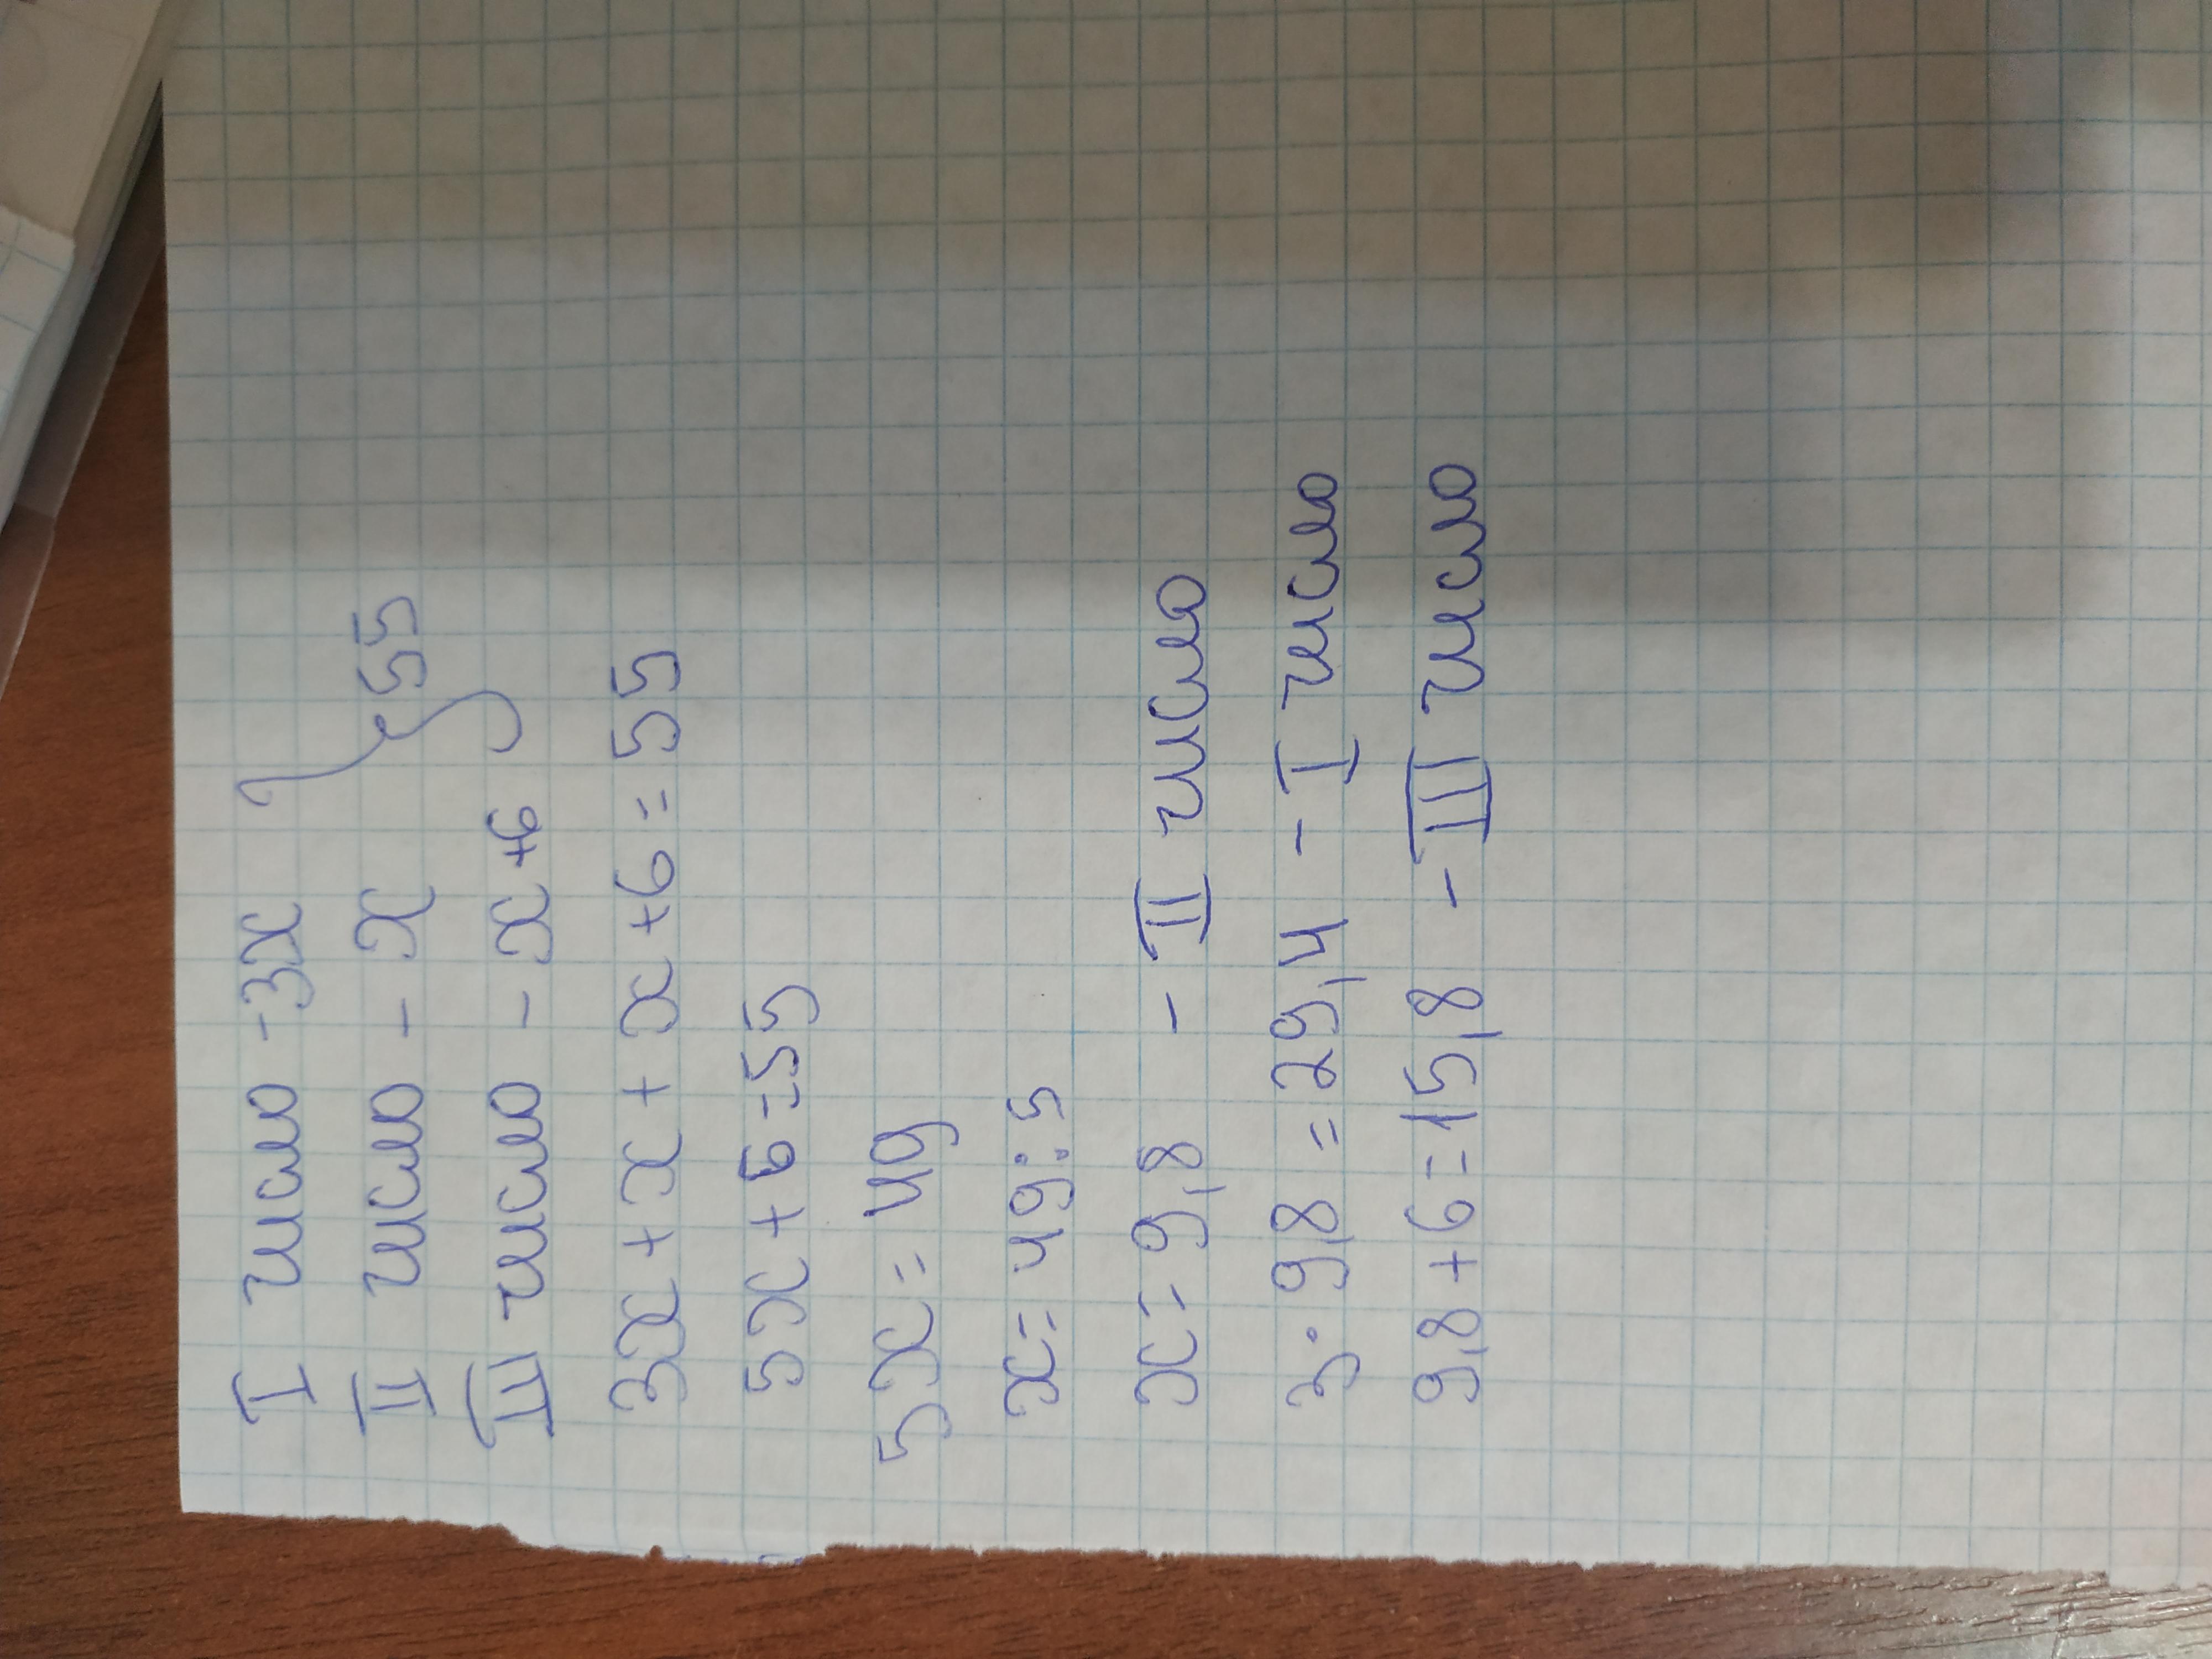 I число - 3x
II число - x } 55
III число - x+6
3x + x + x + 6 = 55
5x + 6 = 55
5x = 49
x = 49 : 5
x = 9,8 - II число
3 · 9,8 = 29,4 - I число
9,8 + 6 = 15,8 - III число